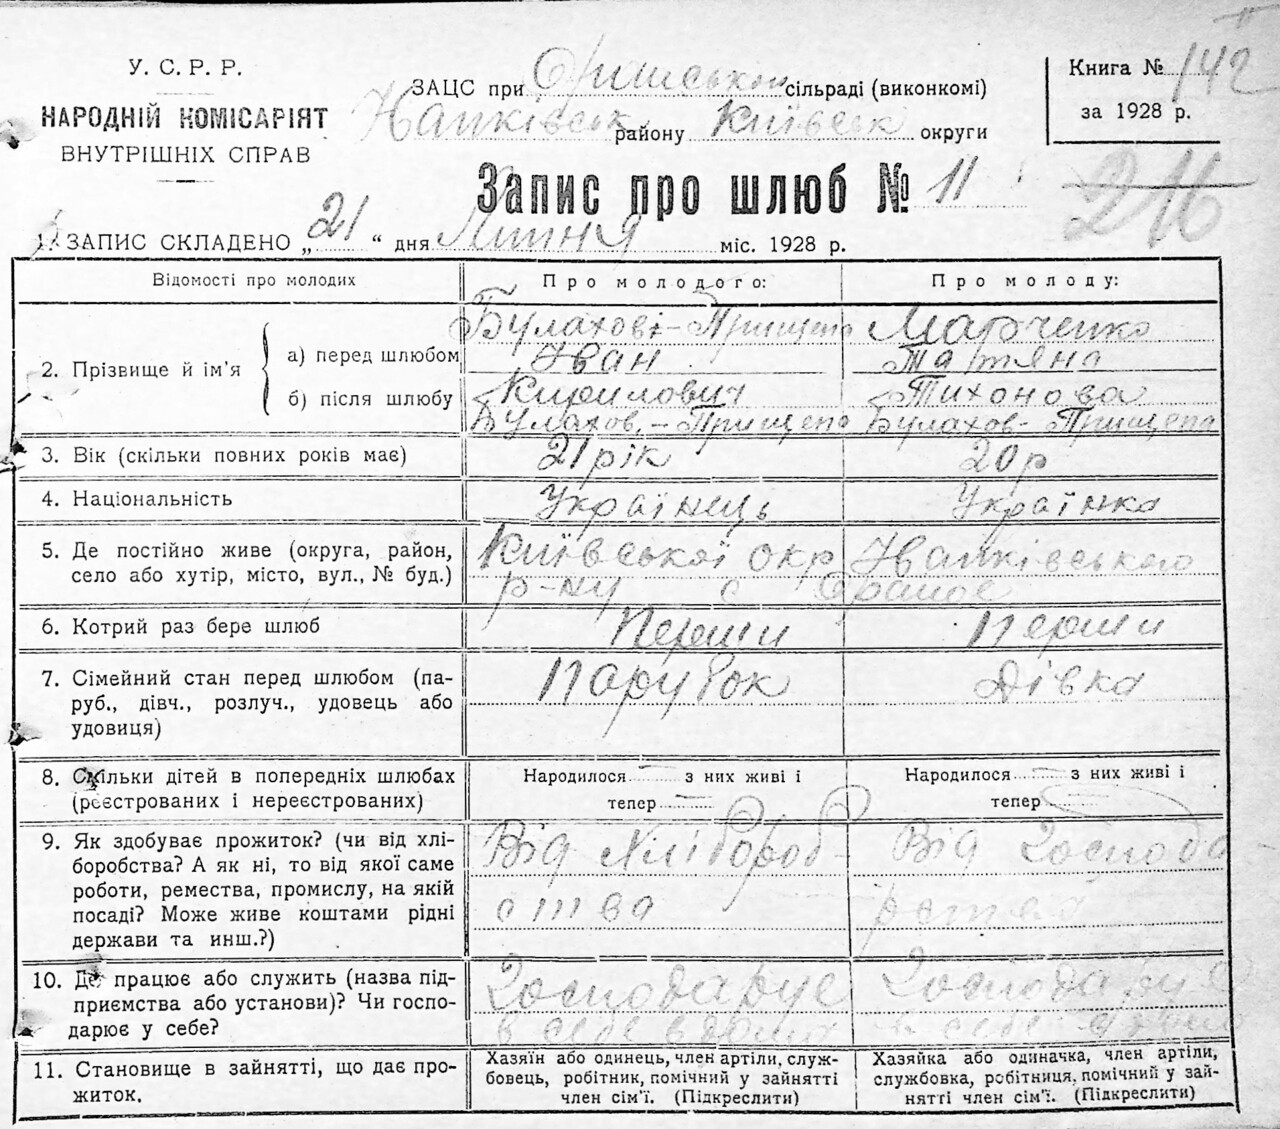 У. С. Р. Р.
НАРОДНІЙ КОМІСАРІЯТ
ВНУТРІШНІХ СПРАВ
ЗАЦС при Ораиської сільраді (виконкомі)
району Київськ округи
Книга № 142
за 1928 р.
216
Запис про шлюб № 11
1. ЗАПИС СКЛАДЕНО „ 21 “ дня Лютня міс. 1928 р.
Відомості про молодих
Про молодого:
Про молоду:
2. Прізвище й ім'я
а) перед шлюбом
б) після шлюбу
Булахові - Прищепа
Іван
Кирилович
Булахов. - Прищепа
Марченко
Татяна
Тихонова
Булахов - Прищепа
3. Вік (скільки повних років має)
21 рік
20 р
4. Національність
Українець
Українка
5. Де постійно живе (округа, район,
село або хутір, місто, вул., № буд.)
Київської окр Іванківського
р-ну с Ораное
6. Котрий раз бере шлюб
Перши
Перши
7. Сімейний стан перед шлюбом (па-
руб., дівч., розлуч., удовець або
удовиця)
Парубок
Дівка
8. Скільки дітей в попередніх шлюбах
(реєстрованих і нереєстрованих)
Народилося — з них живі і
тепер —
Народилося — з них живі і
тепер —
9. Як здобуває прожиток? (чи від хлі-
боробства? А як ні, то від якої саме
роботи, ремества, промислу, на якій
посаді? Може живе коштами рідні
держави та инш.?)
Від Хлібороб-
ства
Від Господа
рства
10. Де працює або служить (назва під-
приємства або установи)? Чи госпо-
дарює у себе?
Господарує
в себе вдома
Господарує
в себе вдома
11. Становище в зайнятті, що дає про-
житок.
Хазяїн або одинець, член артіли, служ-
бовець, робітник, помічний у зайнятті
член сім'ї. (Підкреслити)
Хазяйка або одиначка, член артіли,
службовка, робітниця, помічний у зай-
нятті член сім'ї. (Підкреслити)